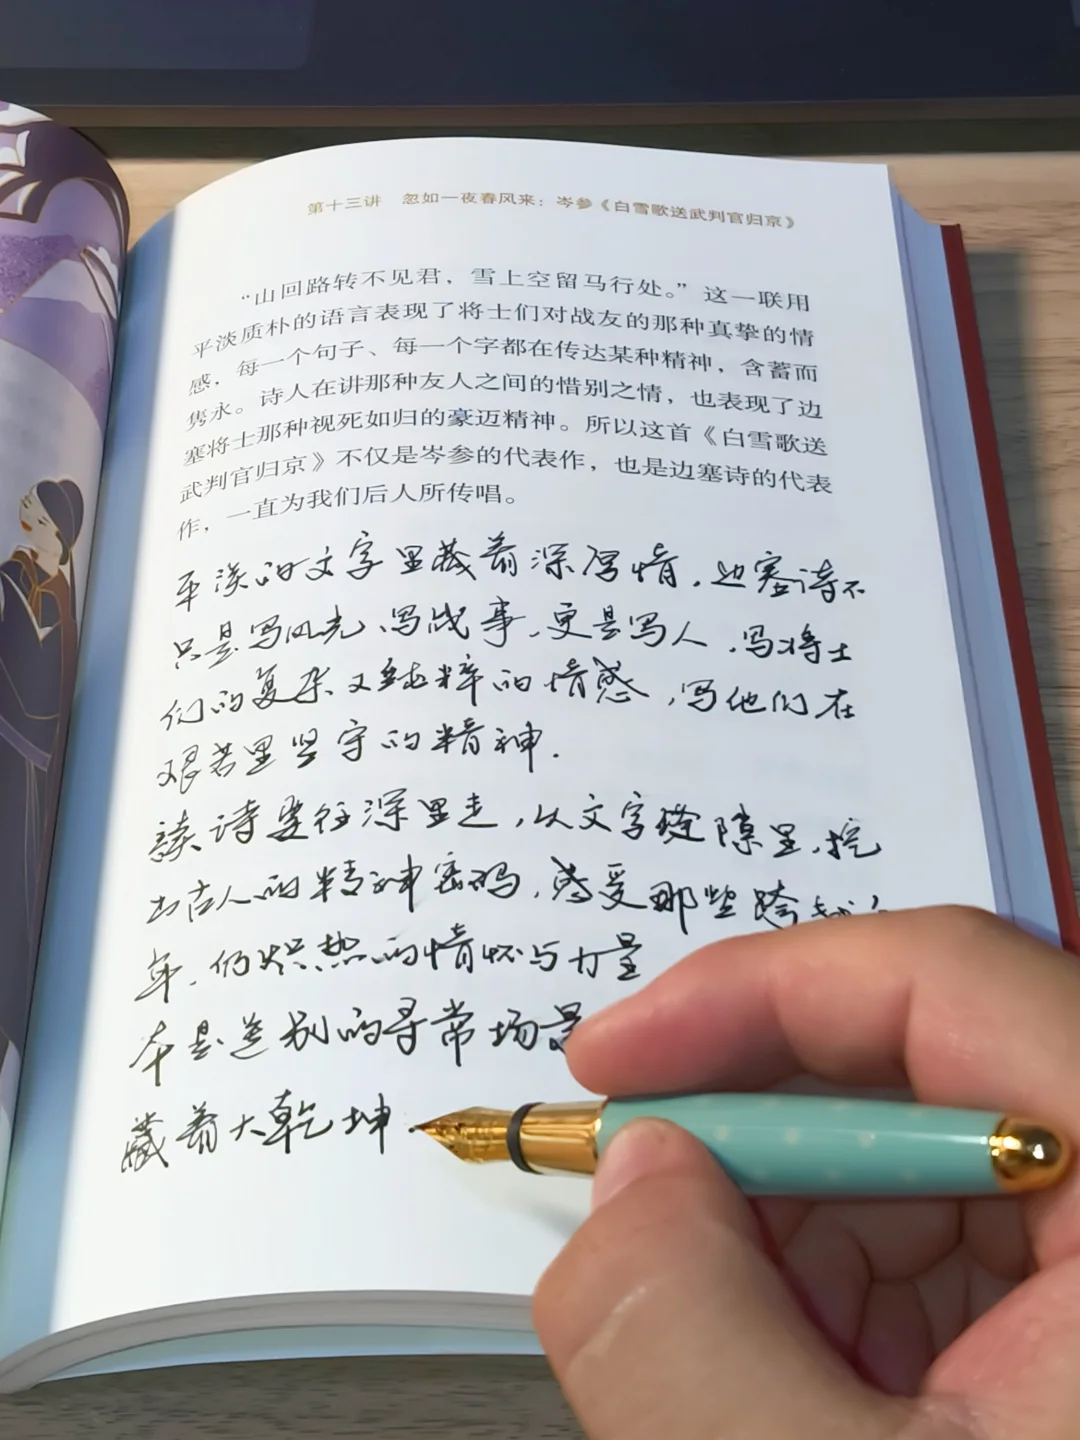 第十三讲 忽如一夜春风来：岑参《白雪歌送武判官归京》
“山回路转不见君，雪上空留马行处。”这一联用
平淡质朴的语言表现了将士们对战友的那种真挚的情
感，每一个句子、每一个字都在传达某种精神，含蓄而
隽永。诗人在讲那种友人之间的惜别之情，也表现了边
塞将士那种视死如归的豪迈精神。所以这首《白雪歌送
武判官归京》不仅是岑参的代表作，也是边塞诗的代表
作，一直为我们后人所传唱。
平淡的文字里藏着深厚情，边塞诗不
只是写风光、写战事，更是写人，写将士
们的复杂又纯粹的情感，写他们在
艰苦里坚守的精神.
读诗要往深里走，从文字缝隙里，挖
出古人的精神密码，感受那些跨越
年，仍炽热的情怀与力量
本是送别的寻常场景
藏着大乾坤.